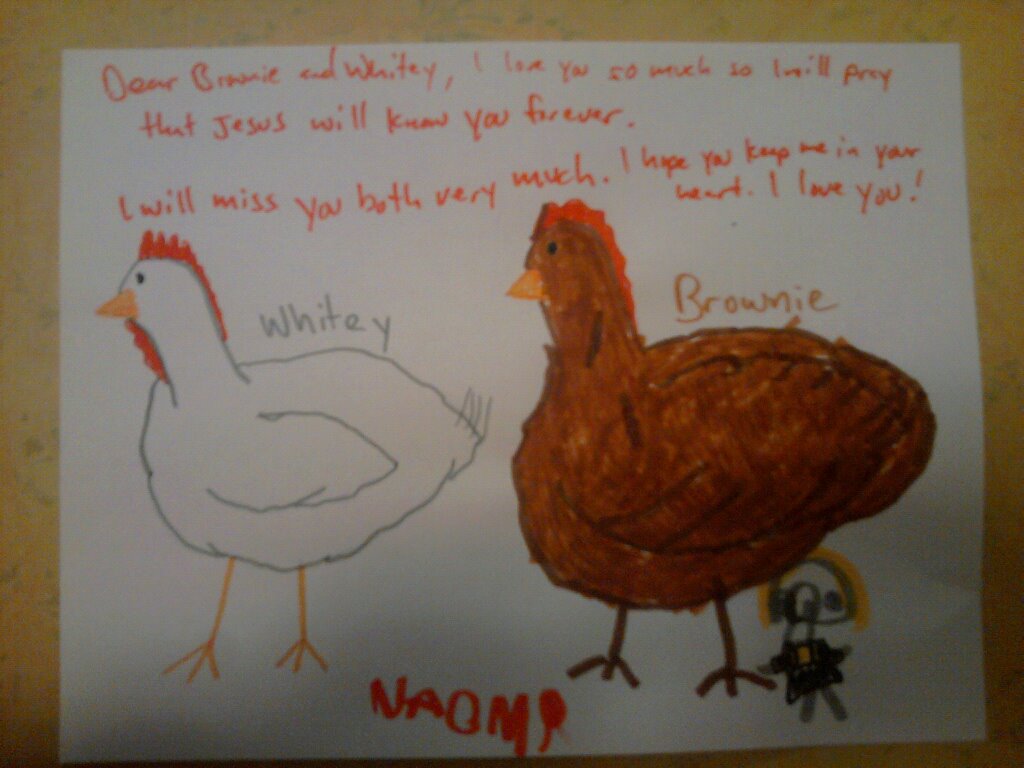 Dear Brownie and Whitey, I love you so much so I will pray
that Jesus will know you forever.
I will miss you both very much. I hope you keep me in your
heart. I love you!
Whitey
Brownie
NAOMI